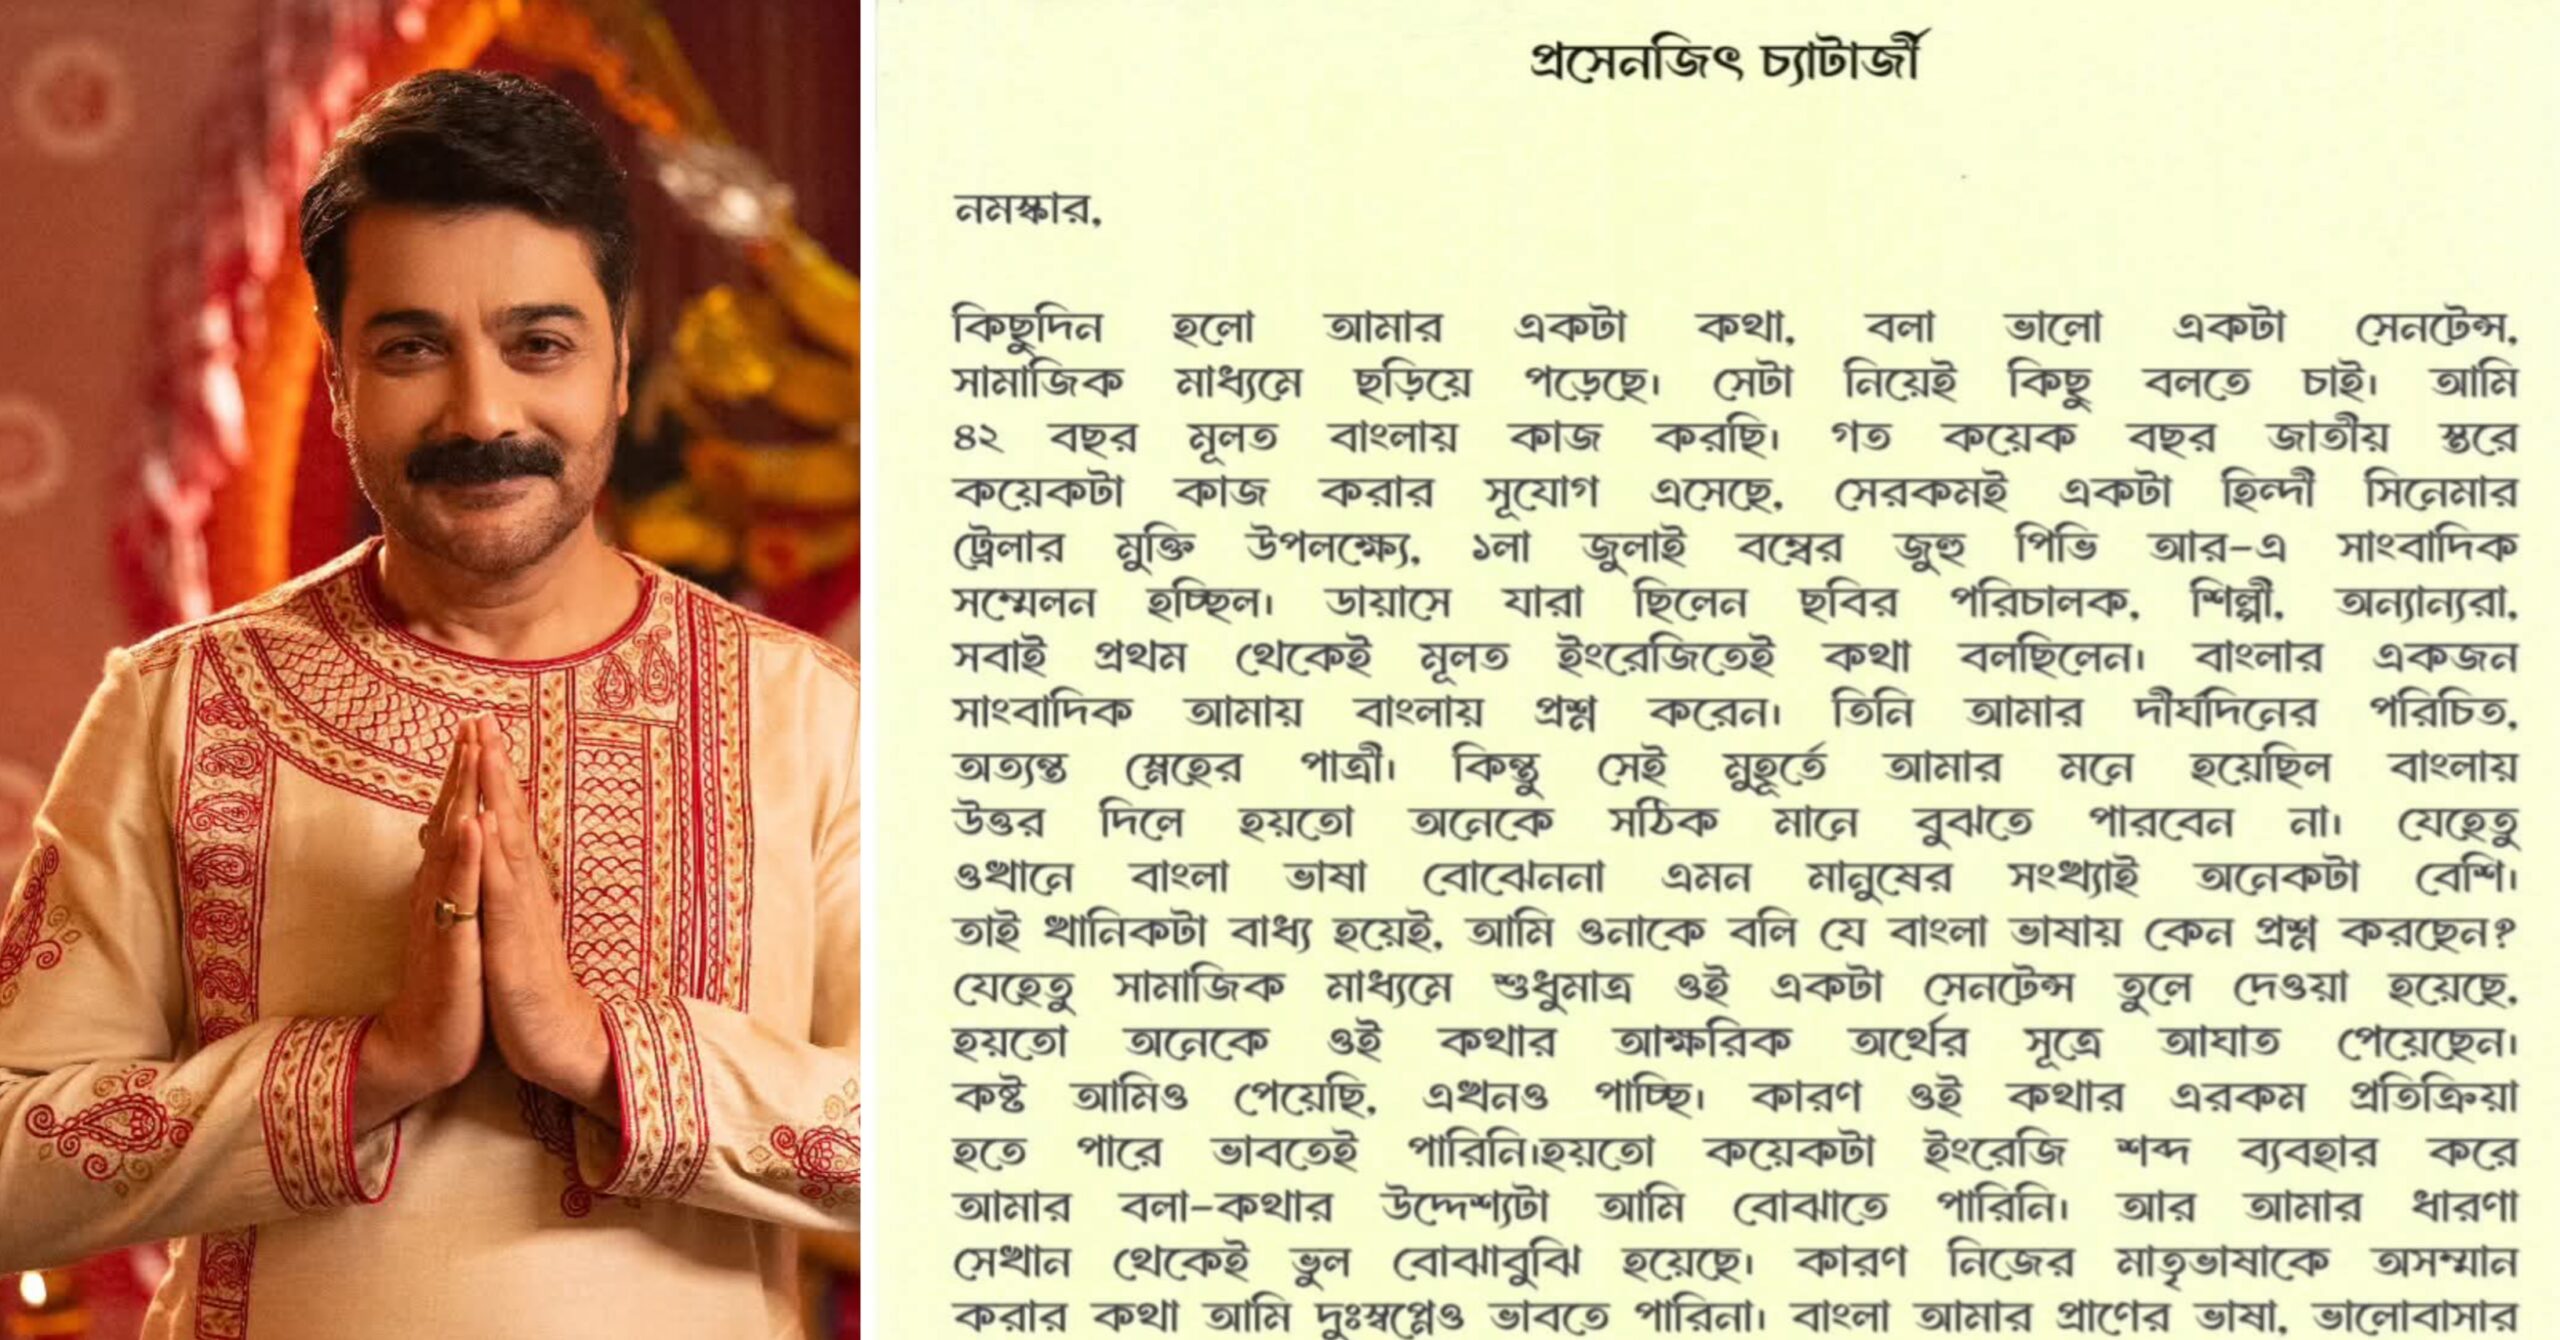 প্রসেনজিৎ চ্যাটার্জী
নমস্কার,
কিছুদিন হলো আমার একটা কথা, বলা ভালো একটা সেনটেন্স,
সামাজিক মাধ্যমে ছড়িয়ে পড়েছে। সেটা নিয়েই কিছু বলতে চাই। আমি
৪২ বছর মূলত বাংলায় কাজ করছি। গত কয়েক বছর জাতীয় স্তরে
কয়েকটা কাজ করার সূযোগ এসেছে, সেরকমই একটা হিন্দী সিনেমার
ট্রেলার মুক্তি উপলক্ষ্যে, ১লা জুলাই বম্বের জুহু পিভি আর-এ সাংবাদিক
সম্মেলন হচ্ছিল। ডায়াসে যারা ছিলেন ছবির পরিচালক, শিল্পী, অন্যান্যরা,
সবাই প্রথম থেকেই মূলত ইংরেজিতেই কথা বলছিলেন। বাংলার একজন
সাংবাদিক আমায় বাংলায় প্রশ্ন করেন। তিনি আমার দীর্ঘদিনের পরিচিত,
অত্যন্ত স্নেহের পাত্রী। কিন্তু সেই মুহূর্তে আমার মনে হয়েছিল বাংলায়
উত্তর দিলে হয়তো অনেকে সঠিক মানে বুঝতে পারবেন না। যেহেতু
ওখানে বাংলা ভাষা বোঝেননা এমন মানুষের সংখ্যাই অনেকটা বেশি।
তাই খানিকটা বাধ্য হয়েই, আমি ওনাকে বলি যে বাংলা ভাষায় কেন প্রশ্ন করছেন?
যেহেতু সামাজিক মাধ্যমে শুধুমাত্র ওই একটা সেনটেন্স তুলে দেওয়া হয়েছে,
হয়তো অনেকে ওই কথার আক্ষরিক অর্থের সূত্রে আঘাত পেয়েছেন।
কষ্ট আমিও পেয়েছি, এখনও পাচ্ছি। কারণ ওই কথার এরকম প্রতিক্রিয়া
হতে পারে ভাবতেই পারিনি।হয়তো কয়েকটা ইংরেজি শব্দ ব্যবহার করে
আমার বলা-কথার উদ্দেশ্যটা আমি বোঝাতে পারিনি। আর আমার ধারণা
সেখান থেকেই ভুল বোঝাবুঝি হয়েছে। কারণ নিজের মাতৃভাষাকে অসম্মান
করার কথা আমি দুঃস্বপ্নেও ভাবতে পারিনা। বাংলা আমার প্রাণের ভাষা, ভালোবাসার